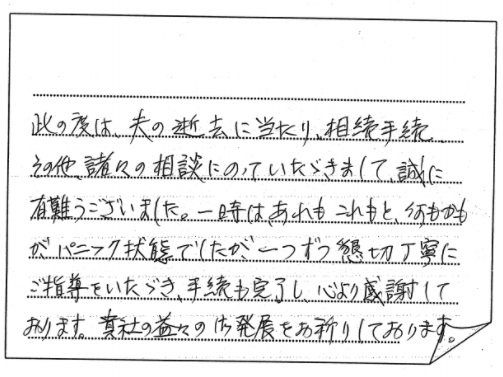 此の度は、夫の逝去に当たり、相続手続
その他、諸々の相談にのっていただきまして、誠に
有難うございました。一時は、あれも これもと、何もかも
が パニック状態でしたが、一つずつ 懇切丁寧に
ご指導をいただき、手続も完了し 心より感謝して
おります。貴社の益々の御発展をお祈りしております。